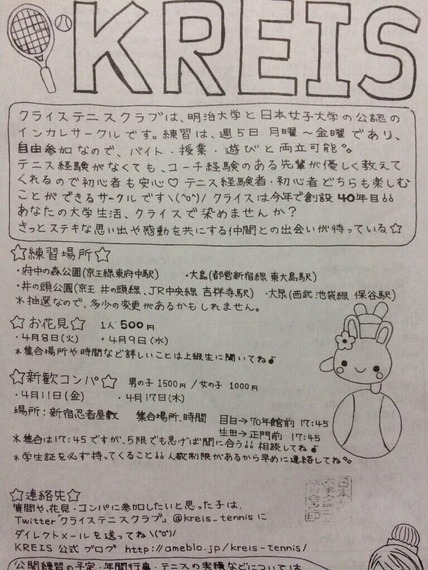 KREIS
クライステニスクラブは、明治大学と日本女子大学の公認の
インカレサークルです。練習は、週5日 月曜〜金曜であり、
自由参加なので、バイト・授業・遊びと両立可能。
テニス経験がなくても、コーチ経験のある先輩が優しく教えて
くれるので初心者も安心♡ テニス経験者・初心者どちらも楽しむ
ことができるサークルです\(^o^)/ クライスは今年で創設40年目!!
あなたの大学生活、クライスで染めませんか?
きっとステキな思い出や感動を共にする仲間との出会いが待っている☆
☆練習場所☆
・府中の森公園(京王線東府中駅) ・大島(都営新宿線 東大島駅)
・井の頭公園(京王 井の頭線、JR中央線 吉祥寺駅) ・大泉(西武池袋線 保谷駅)
*抽選なので、多少の変更があるかもしれません。
☆お花見☆ 1人500円
・4月8日(火) ・4月9日(水)
*集合場所や時間など詳しいことは上級生に聞いてね♪
☆新歓コンパ☆ 男の子 1500円 / 女の子 1000円
・4月11日(金) ・4月17日(木)
場所:新宿忍者屋敷 集合場所、時間 目白→70年館前 17:45
生田→正門前 17:45
*集合は17:45ですが、5限でも急げば間に合う!!相談してね♪
*学生証を必ず持ってくること!!人数制限があるから早めに連絡してね。
☆連絡先☆
質問や、花見・コンパに参加したいと思った子は、
Twitter「クライステニスクラブ」@kreis_tennis に
ダイレクトメールを送ってね\(^o^)/
KREIS 公式ブログ http://ameblo.jp/kreis-tennis/
公開練習の予定・年間行事・テニスの実績などについては